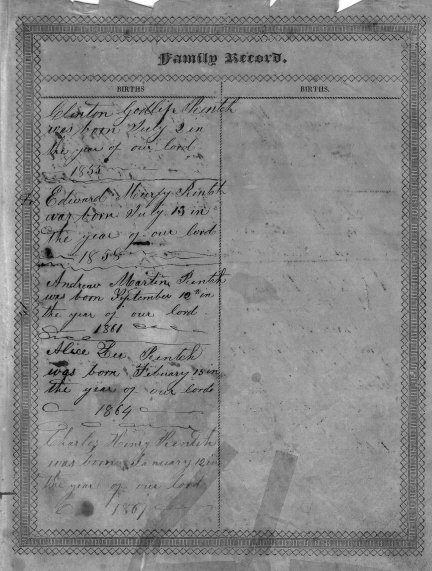 Family Record.
BIRTHS
BIRTHS.
Clinton
was born July 9 in
the year of our lord
1855
Edward Rentch
was born July 13 in
the year of our lord
Andrew Martin Rentch
was born September 12th in
the year of our lord
1861
Alice Rentch
was born February 15 in
the year of our lords
1864
Charles Henry Rentch
was born January 12 in
the year of our lord